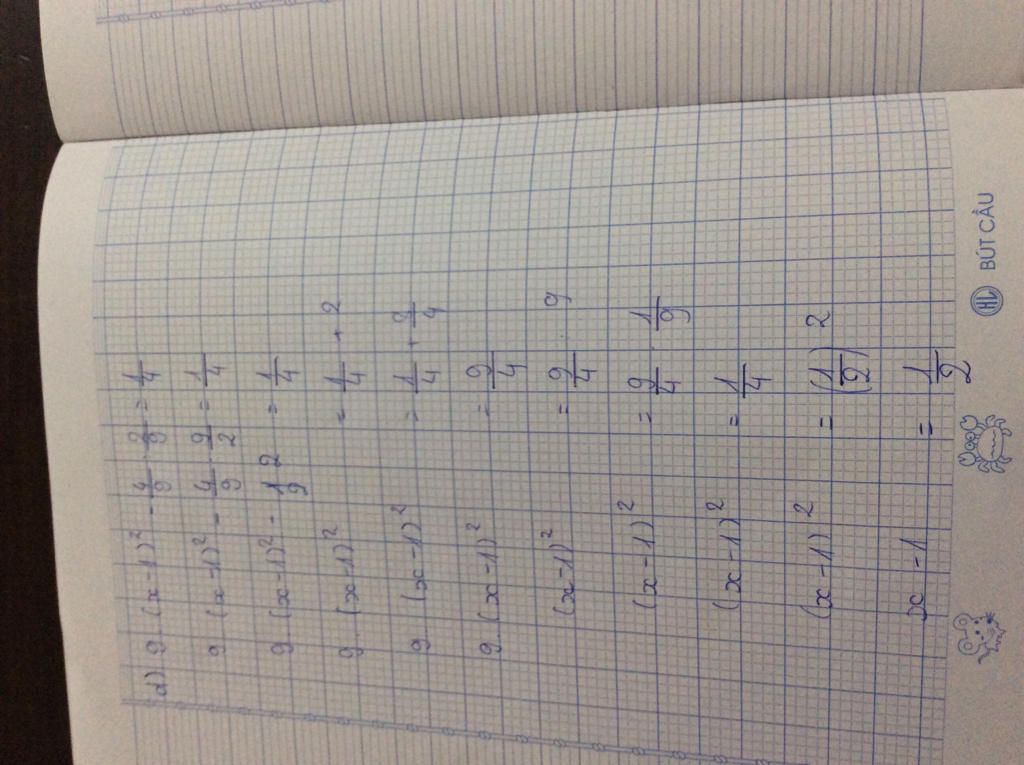 d) 9 . (x-1)² - 4/9 : 2/9 = 1/4
9 . (x-1)² - 4/9 . 9/2 = 1/4
9 . (x-1)² - 2 = 1/4
9 . (x-1)² = 1/4 + 2
9 . (x-1)² = 1/4 + 8/4
9 . (x-1)² = 9/4
(x-1)² = 9/4 : 9
(x-1)² = 9/4 . 1/9
(x-1)² = 1/4
(x-1)² = (1/2)²
x-1 = 1/2
HL BÚT CÂU